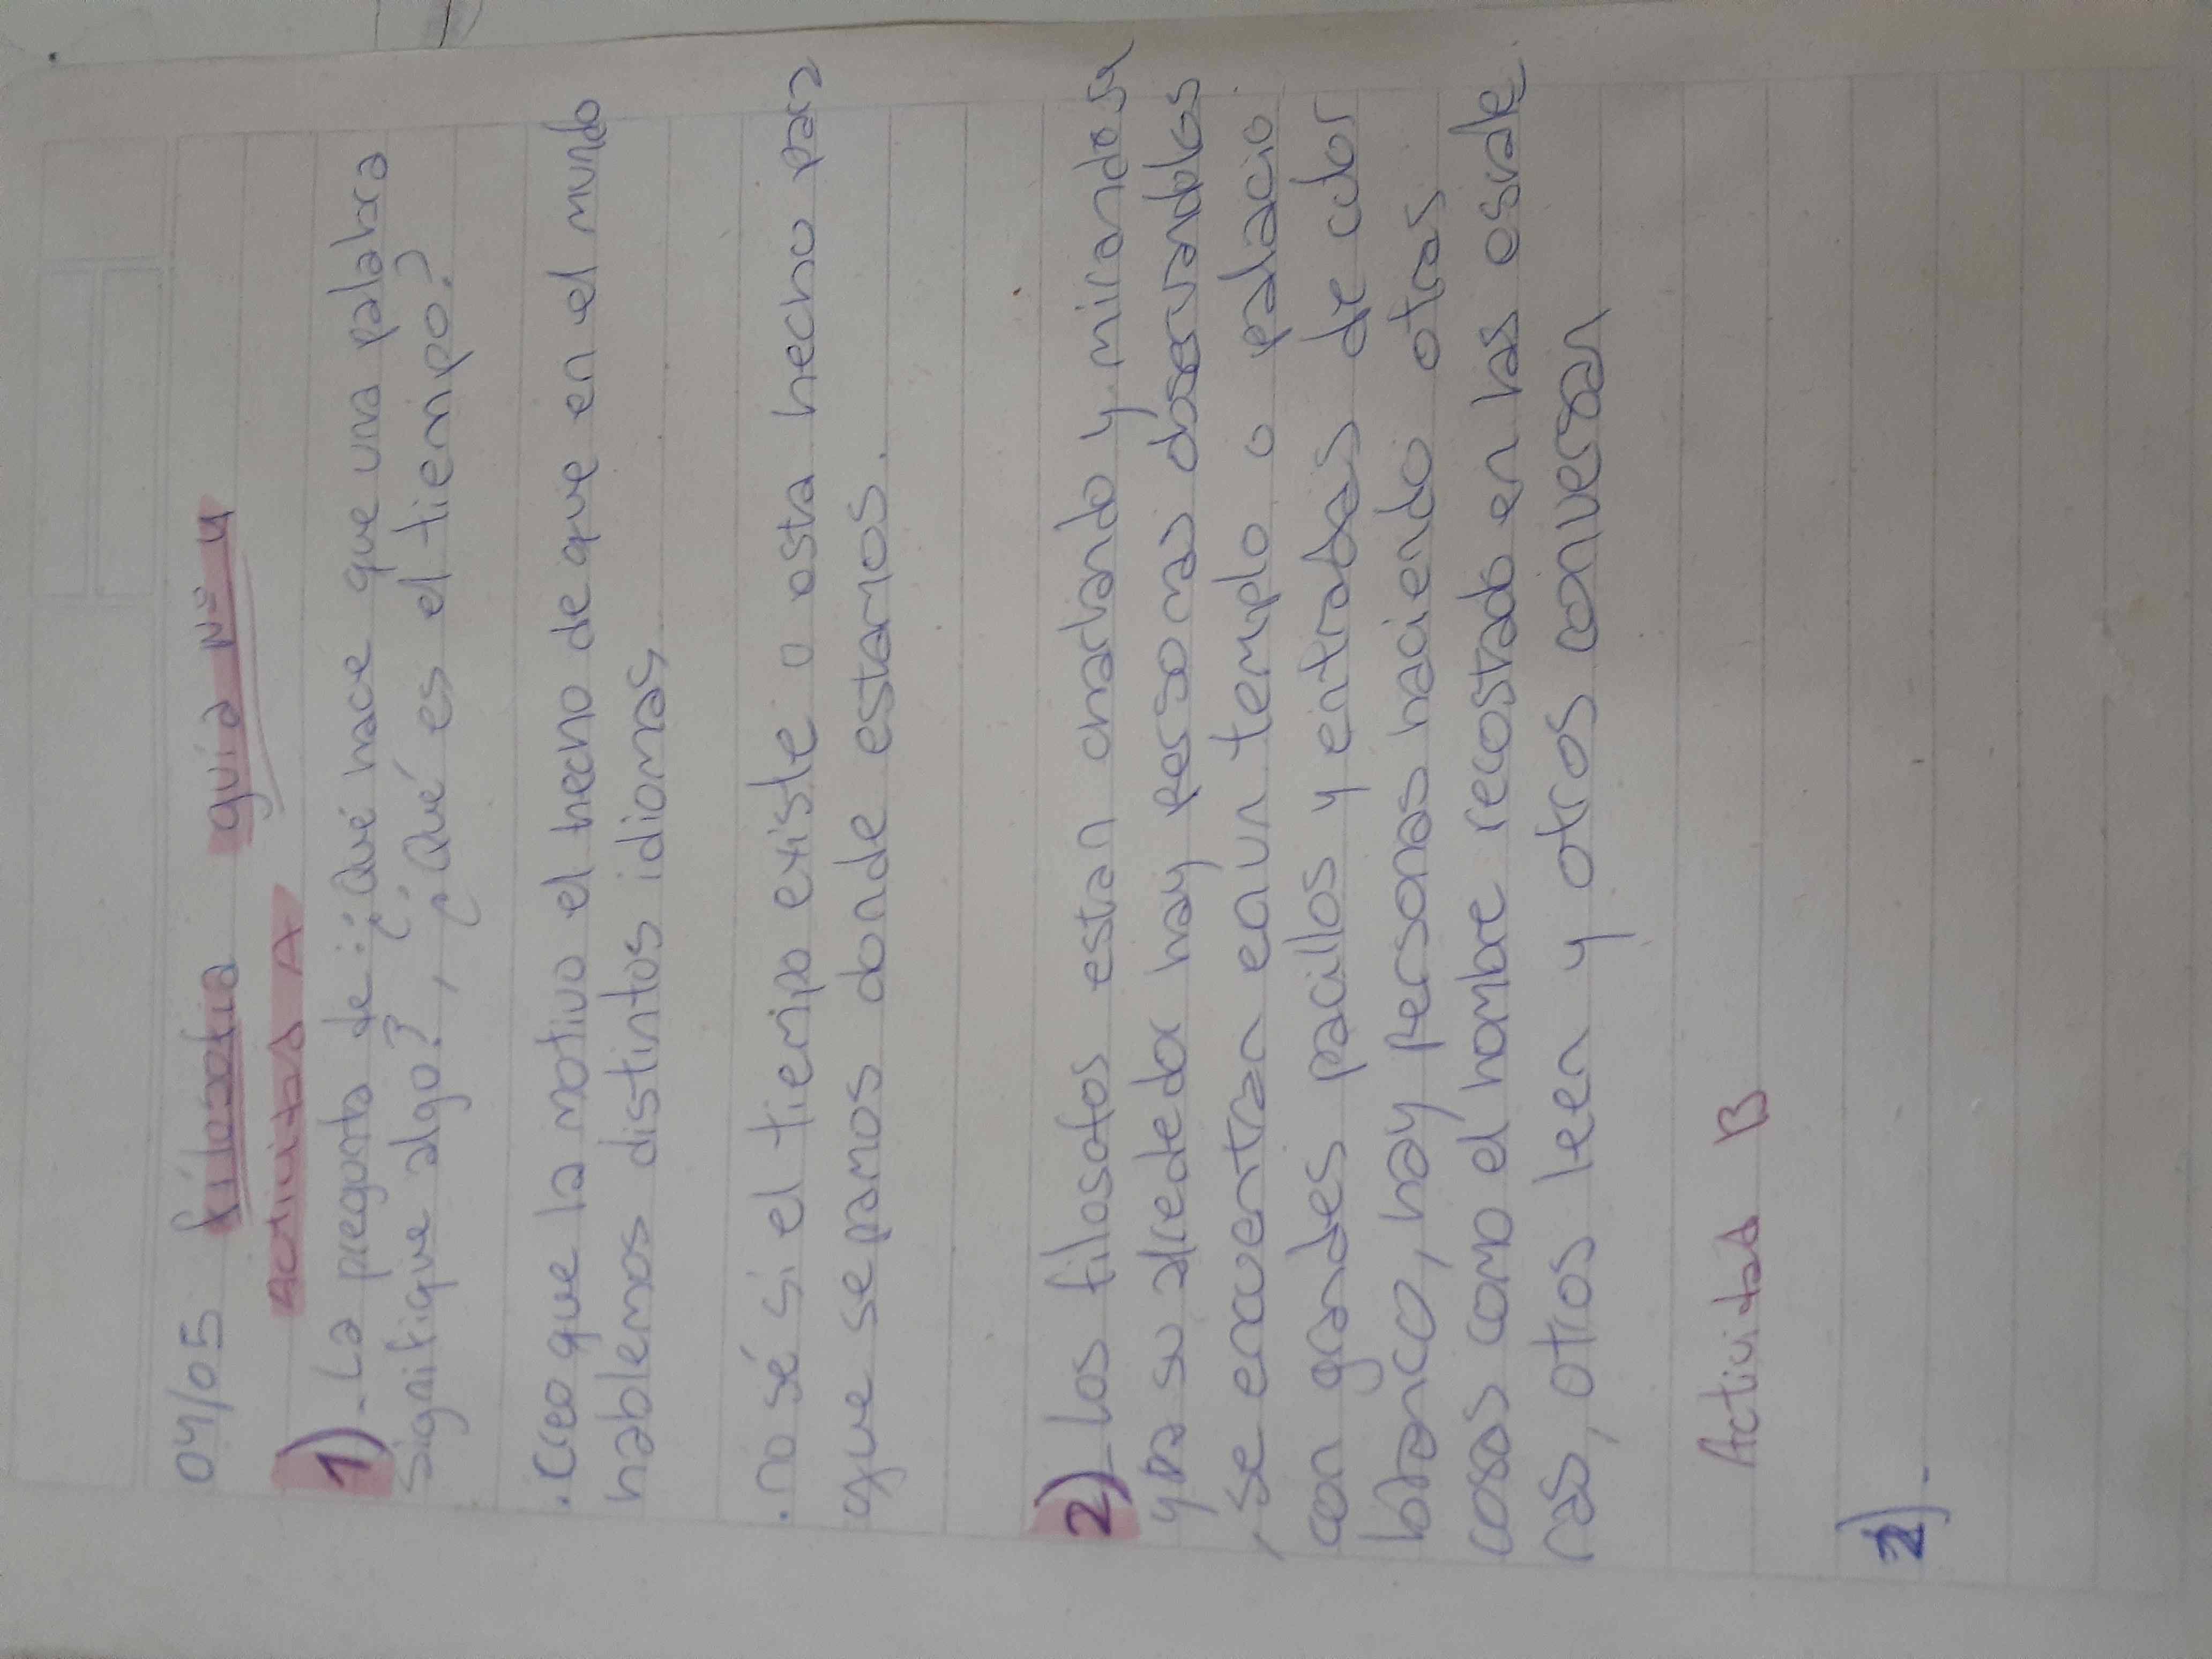 04/05 filosofia guia Nº 4
Actividad A
1)-La pregonta de: ¿Qué hace que una palabra
signifique algo?, ¿Qué es el tiempo?
.Creo que la motivo el hecho de que en el mundo
hablemos distintos idiomas,
.no sé si el tiempo existe o esta hecho para
que sepamos donde estamos.
2)-Los filosofos estan charlando y mirandose
y a su alrededor hay personas observandolos
, se encuentran en un templo o palacio
con grandes pacillos y entradas de color
blanco, hay personas haciendo otras
cosas como el hombre recostado en las escale
ras, otros leen y otros conversan
Actividad B
1)-